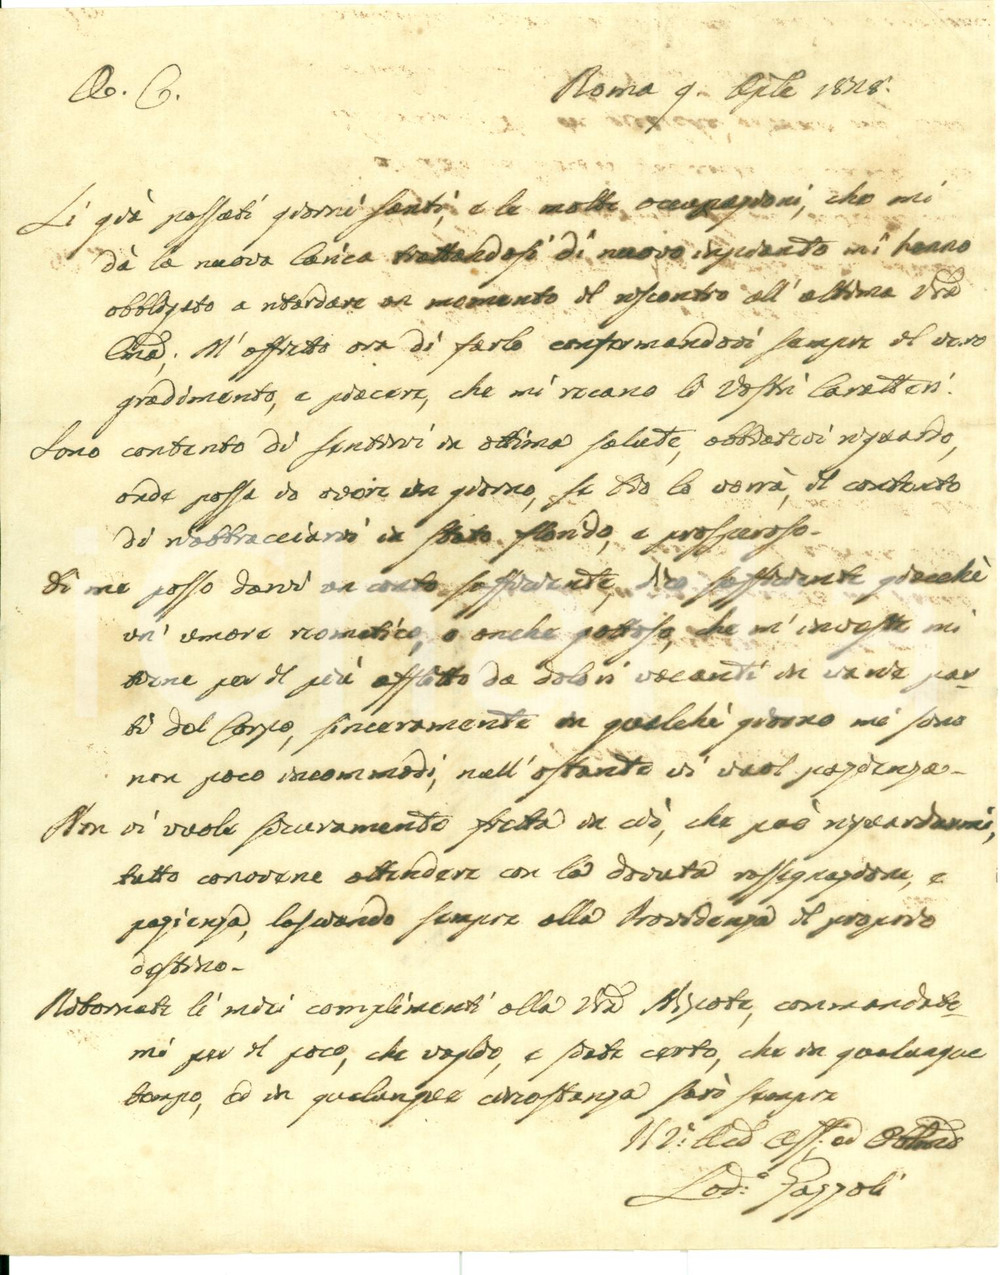 A. C.
Roma 9. Aple 1828.
Li già passati giorni santi, e le molte occupazioni, che mi
dà la nuova Carica trattandosi di nuovo impianto mi hanno
obbligato a ritardare un momento il riscontro all'ultima Vra
M'affretto ora di farlo confermandovi sempre il vero
gradimento, e piacere, che mi recano li Vostri Caratteri.
Sono contento di sentirvi in ottima salute, abbiatevi riguardo,
onde possa io avere un giorno, se Dio lo vorrà, il contento
di riabbracciarvi in stato florido, e prosperoso.
Di me posso darvi un conto sufficiente, dico sufficiente giacchè
un' umore reomatico, o anche gottoso, che m'investe mi
tiene per il più afflitto da dolori vaganti in varie par-
ti del Corpo, sinceramente in qualchè giorno mi sono
non poco incommodi, null'ostante vi vuol pazienza.
Non vi vuole sicuramente fretta in ciò, che può riguardarmi,
tutto conviene attendere con la dovuta rassegnazione, e
pazienza, lasciando sempre alla Providenza il proprio
destino.
Ritornate li miei complimenti alla Vra Nipote, commandate-
mi per il poco, che vaglio, e siate certo, che in qualunque
tempo, ed in qualunque circostanza sarò sempre
Aff: ed
Lod:o Gazzoli